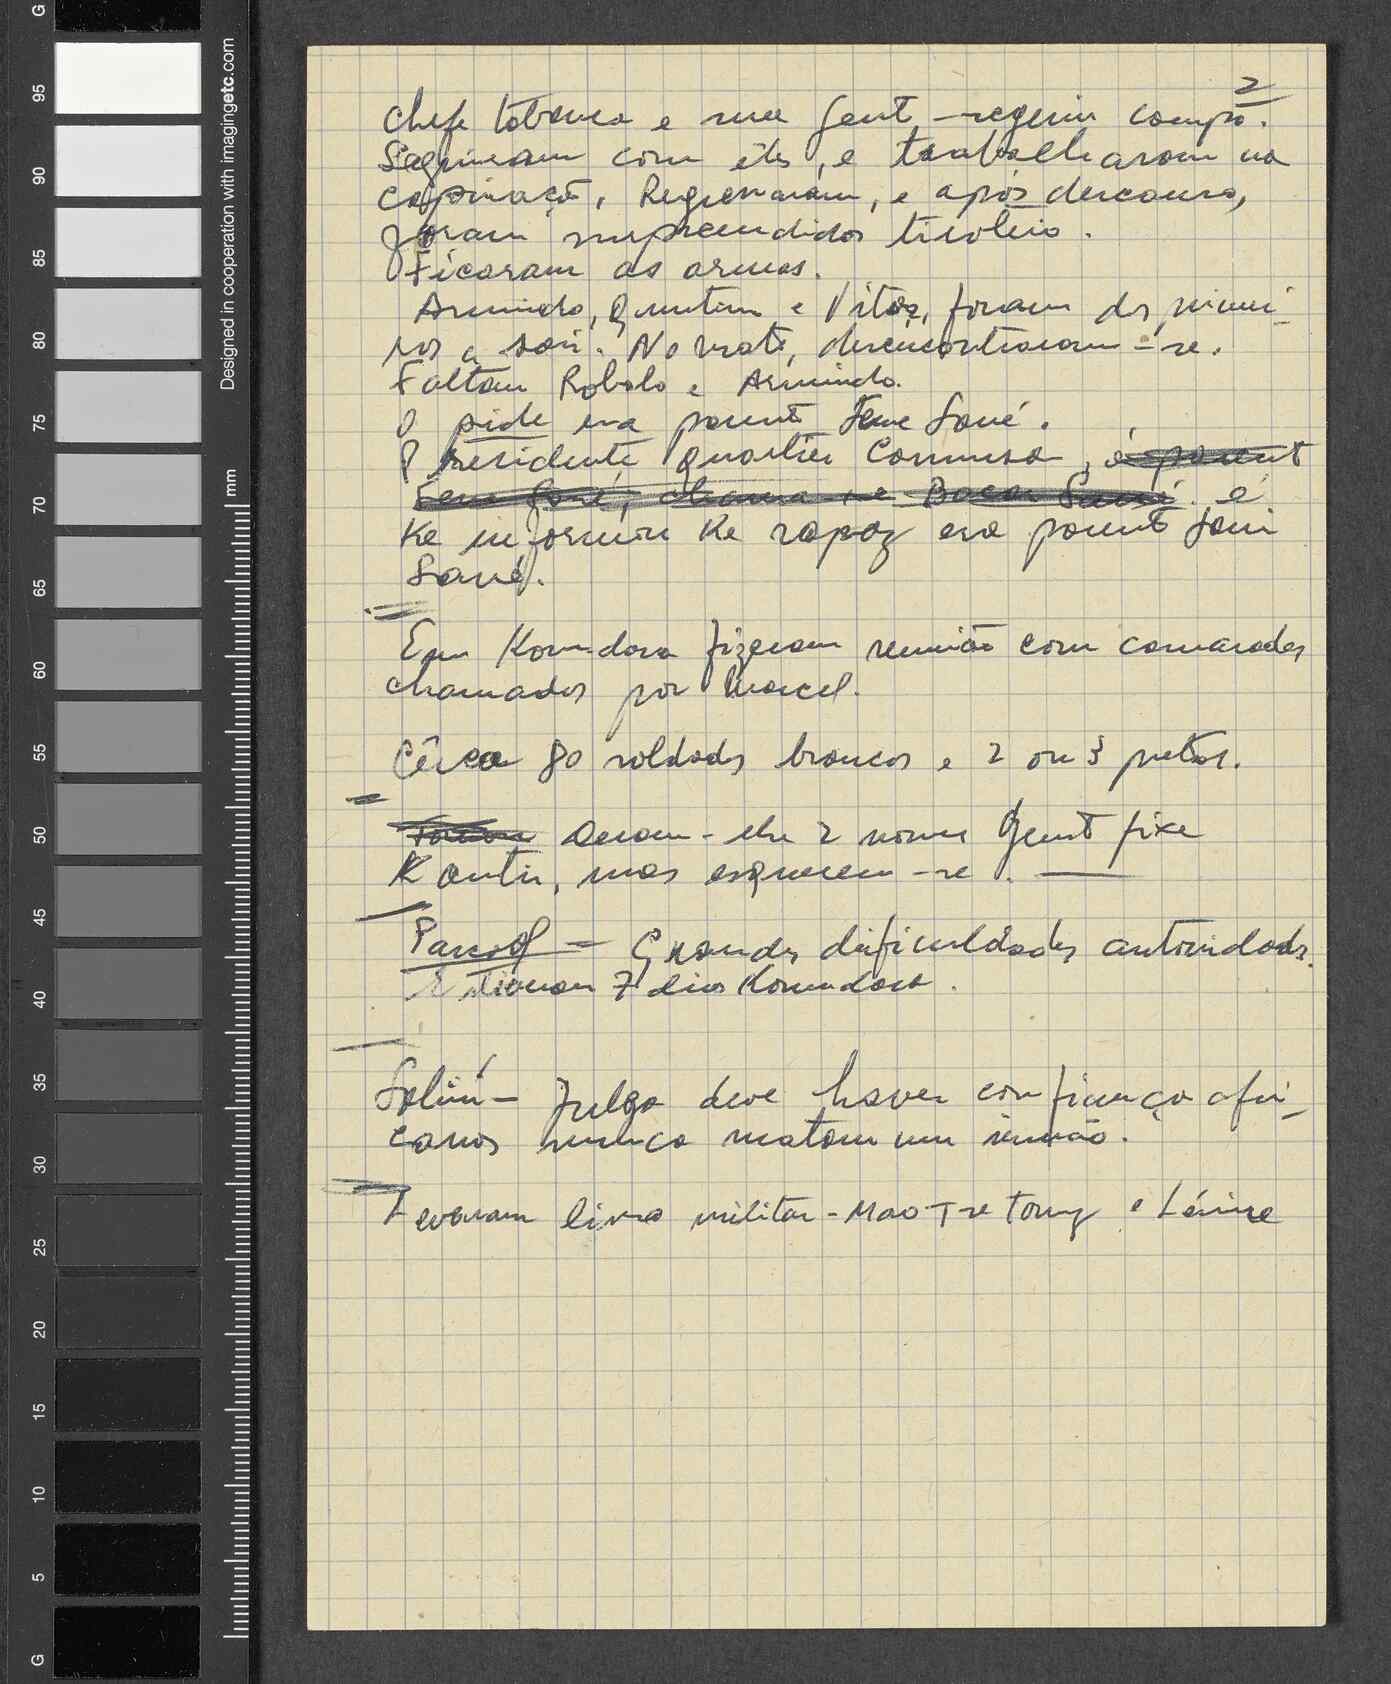 2
Chefe tabanca e sua gent seguiu campo.
Seguiram com êles, e trabalharam na
capinação. Regressaram, e após descanso,
foram surpreendidos tiroteio.
Ficaram as armas.
Armindo, Quintin e Vitor, foram dos primei-
ros a sair. No mato, desencontraram-se.
Faltam Robalo e Armindo.
O pide era parent Sané.
Presidente quartier Comuna, é parent
Sané, chama-se Bacar Sané. é
Ke informou Ke rapaz era parent
Sané.
Em Koundara fizeram reunião com camaradas
chamados por Marcel.
Cêrca 80 soldados brancos e 2 ou 3 pretos.
Deram-lhe 2 nomes gent fixe
mas esquecem-se.
Grandes dificuldades autoridades.
Estiveram 7 dias Koundara.
Julga deve haver confiança afri-
canos nunca matam um irmão.
Levavam livro militar - Mao Tse Toung e Lénine
Designed in cooperation with imagingetc.com
mm
G
95
90
85
80
75
70
65
60
55
50
45
40
35
30
25
20
15
10
5
G